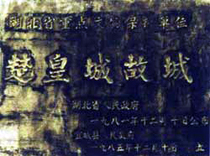 湖北省重点文物保护单位
楚皇城故城
湖北省人民政府
一九八一年十二月 十日公布
宜城县人民政府
一九八五年十二月十 立